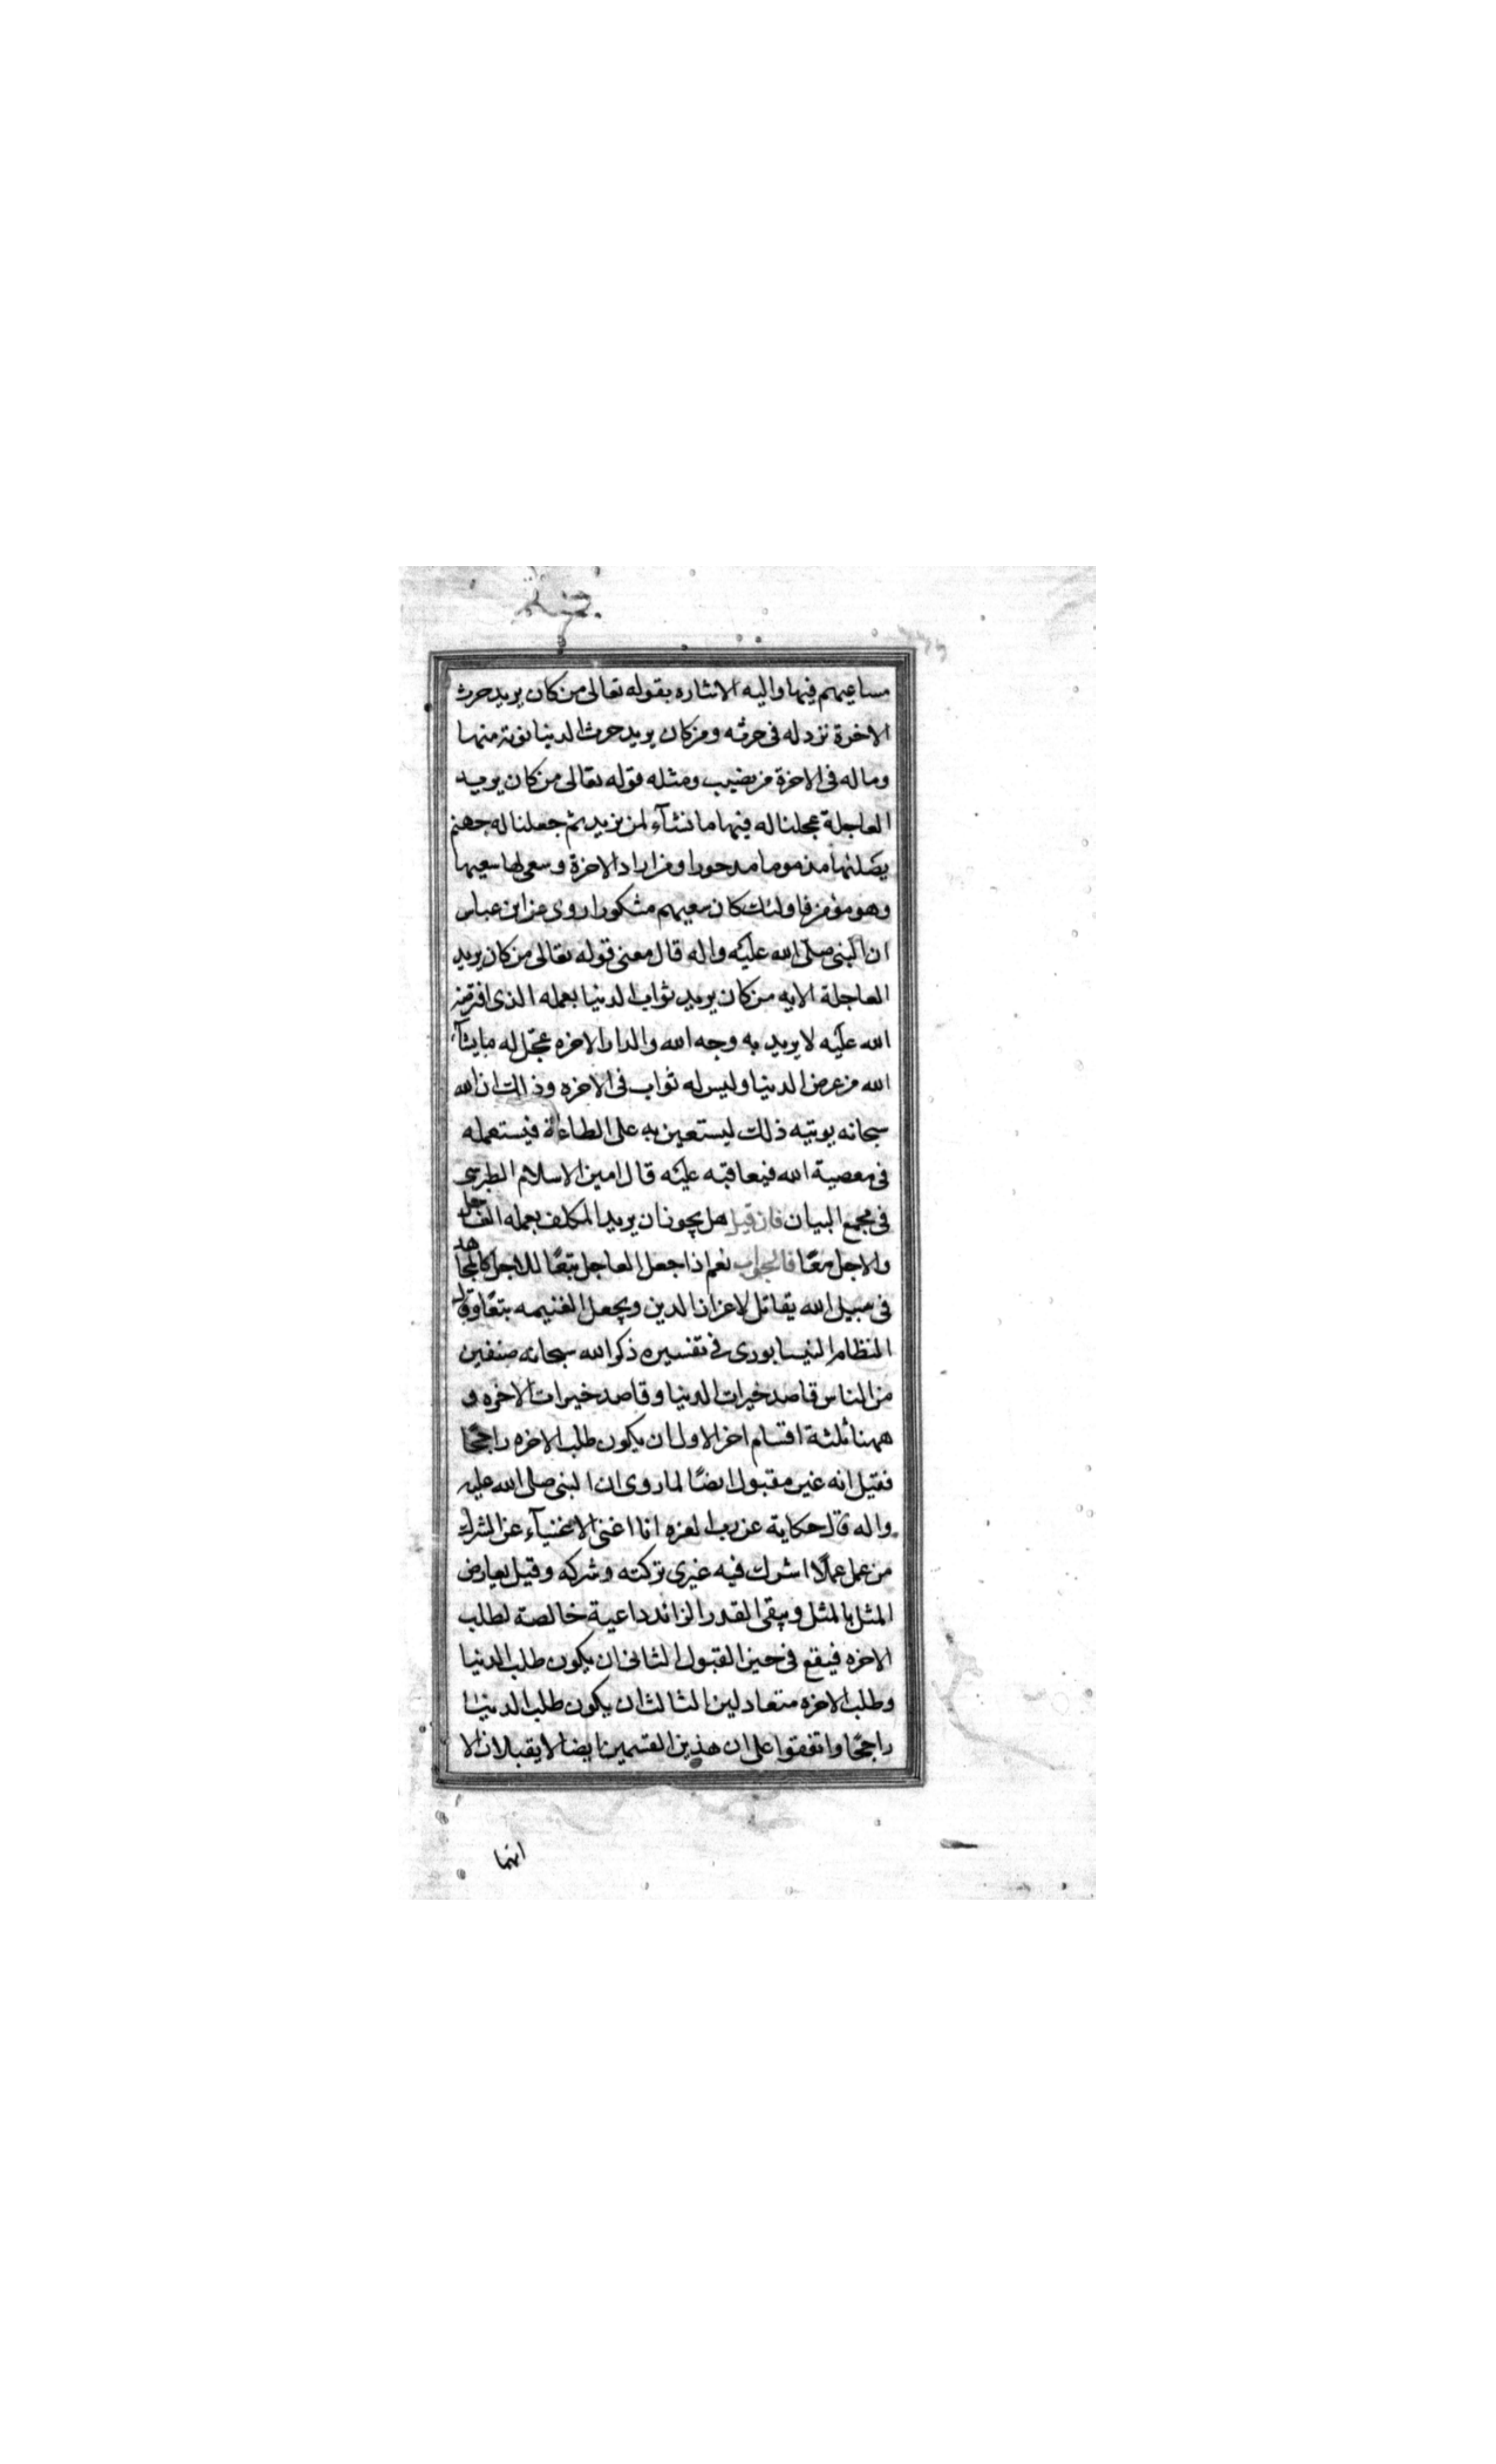 مساعيهم فيها واليه الاشاره بقوله تعالى من كان يريد حرث
الاخرة نزد له فى حرثه ومن كان يريد حرث الدنيا نوته منها
وما له فى الاخرة من نصيب ومثله قوله تعالى من كان يريد
العاجلة عجلنا له فيها ما نشآء لمن نريد ثم جعلنا له جهنم
يصلئها مذموما مدحورا ومن اراد الاخرة وسعى لها سعيها
وهو مؤمن فاولئك كان سعيهم مشكورا روى عن ابن عباس
ان النبى صلى الله عليه واله قال معنى قوله تعالى من كان يريد
العاجلة الايه من كان يريد ثواب الدنيا بعمله الذى افترضه
الله عليه لا يريد به وجه الله والدار الاخره عجّل له ما يشآء
الله من عرض الدنيا وليس له ثواب فى الاخره وذالك ان الله
سبحانه يوتيه ذلك ليستعين به على الطاعة فيستعمله
فى معصية الله فيعاقبه عليه قال امين الاسلام الطبرسى
فى مجمع البيان فان قيل هل يجوز ان يريد المكلف بعمله العاجل
والاجل معًا فالجواب نعم اذا جعل العاجل تبعًا للاجل كالمجاهد
فى سبيل الله يقاتل لاعزاز الدين ويجعل الغنيمه تبعًا وقال
النظام النيسابورى فى تفسيره ذكر الله سبحانه صنفين
من الناس قاصد خيرات الدنيا وقاصد خيرات الاخره و
ههنا ثلثة اقسام اخر الاول ان يكون طلب الاخره راجحًا
فقيل انه غير مقبول ايضًا لما روى ان النبى صلى الله عليه
واله قال حكاية عن رب العزه انا اغنى الاغنيآء عن الشرك
من عمل عملًا اشرك فيه غيرى تركته وشركه وقيل يعارض
المثل بالمثل ويبقى القدر الزائد داعية خالصة لطلب
الاخره فيقع فى حيز القبول الثانى ان يكون طلب الدنيا
وطلب الاخره متعادلين الثالث ان يكون طلب الدنيا
راجحًا واتفقوا على ان هذين القسمين ايضا لا يقبلان الا
انهما